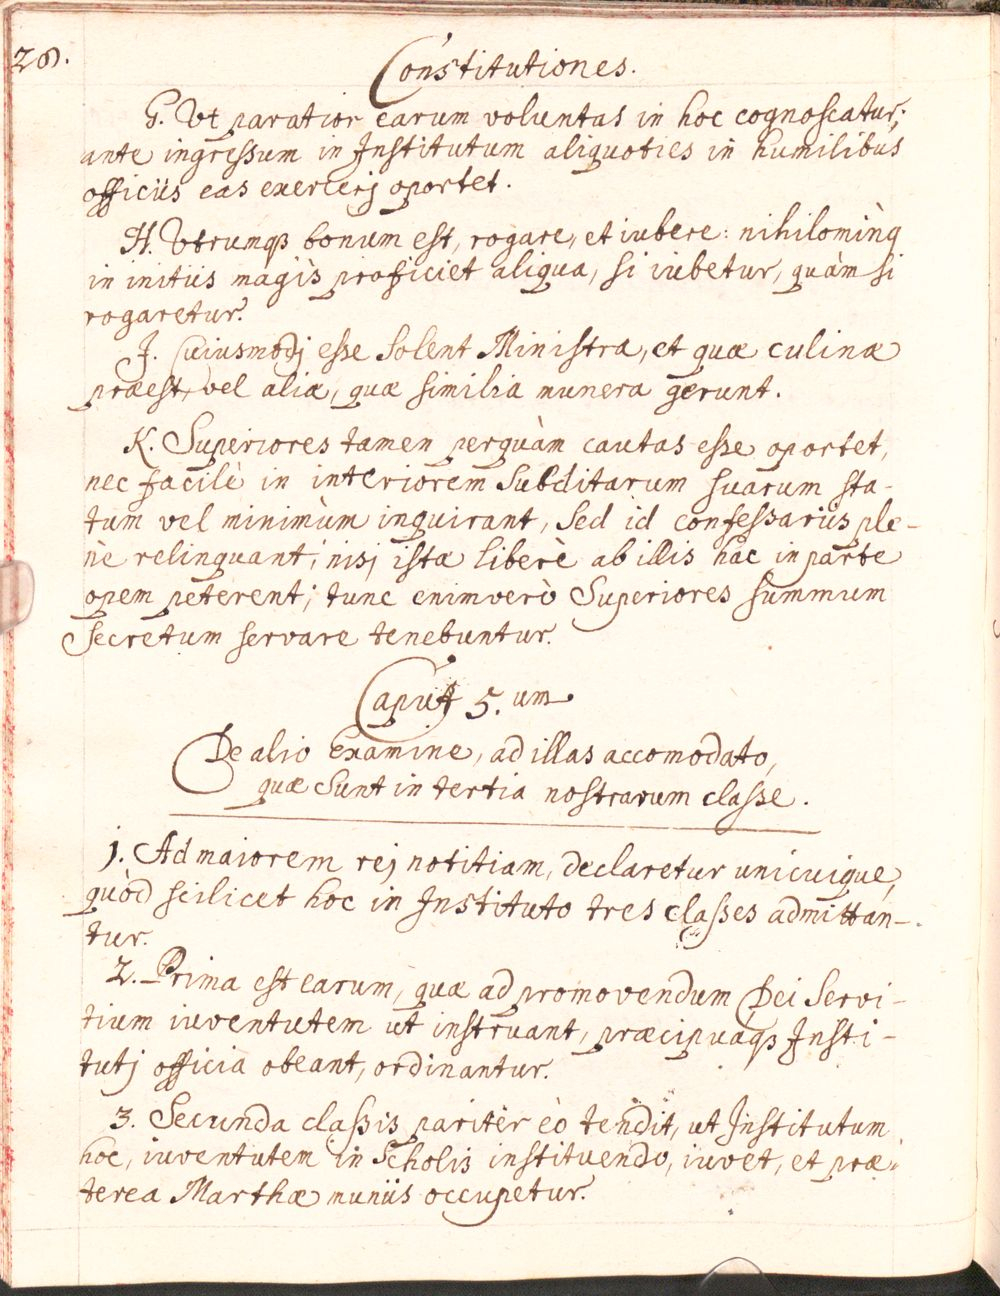 28.
Constitutiones.
G. Ut paratior earum voluntas in hoc cognoscatur;
ante ingressum in Institutum aliquoties in humilibus
officiis eas exercerj oportet.
H. Utrumqꝫ bonum est, rogare, et iubere: nihilominq
in initiis magìs proficiet aliqua, si iubetur, quàm si
rogaretur.
J. Cuiusmodj esse solent Ministra, et quæ culinæ
præest, vel aliæ, quæ similia munera gerunt.
K. Superiores tamen perquàm cautas esse oportet,
nec facilè in interiorem Subditarum suarum sta-
tum vel minimùm inquirant, sed id confessariis ple-
nè relinquant; nisj istæ liberè ab illis hac in parte
opem peterent; tunc enimverò Superiores summum
secretum servare tenebuntur.
Caput 5.um
De alio Examine, ad illas accomodato,
quæ sunt in tertia nostrarum classe.
1. Ad maiorem rej notitiam, declaretur unicuique,
quòd scilicet hoc in Instituto tres classes admittan-
tur.
2. Prima est earum, quæ ad promovendum Dei Servi-
tium iuventutem ut instruant, præcipuaqꝫ Insti-
tutj officia obeant, ordinantur.
3. Secunda classis paritèr eò tendit, ut Institutum
hoc, iuventutem in Scholis instituendo, iuvet, et præ-
terea Marthæ muniis occupetur.